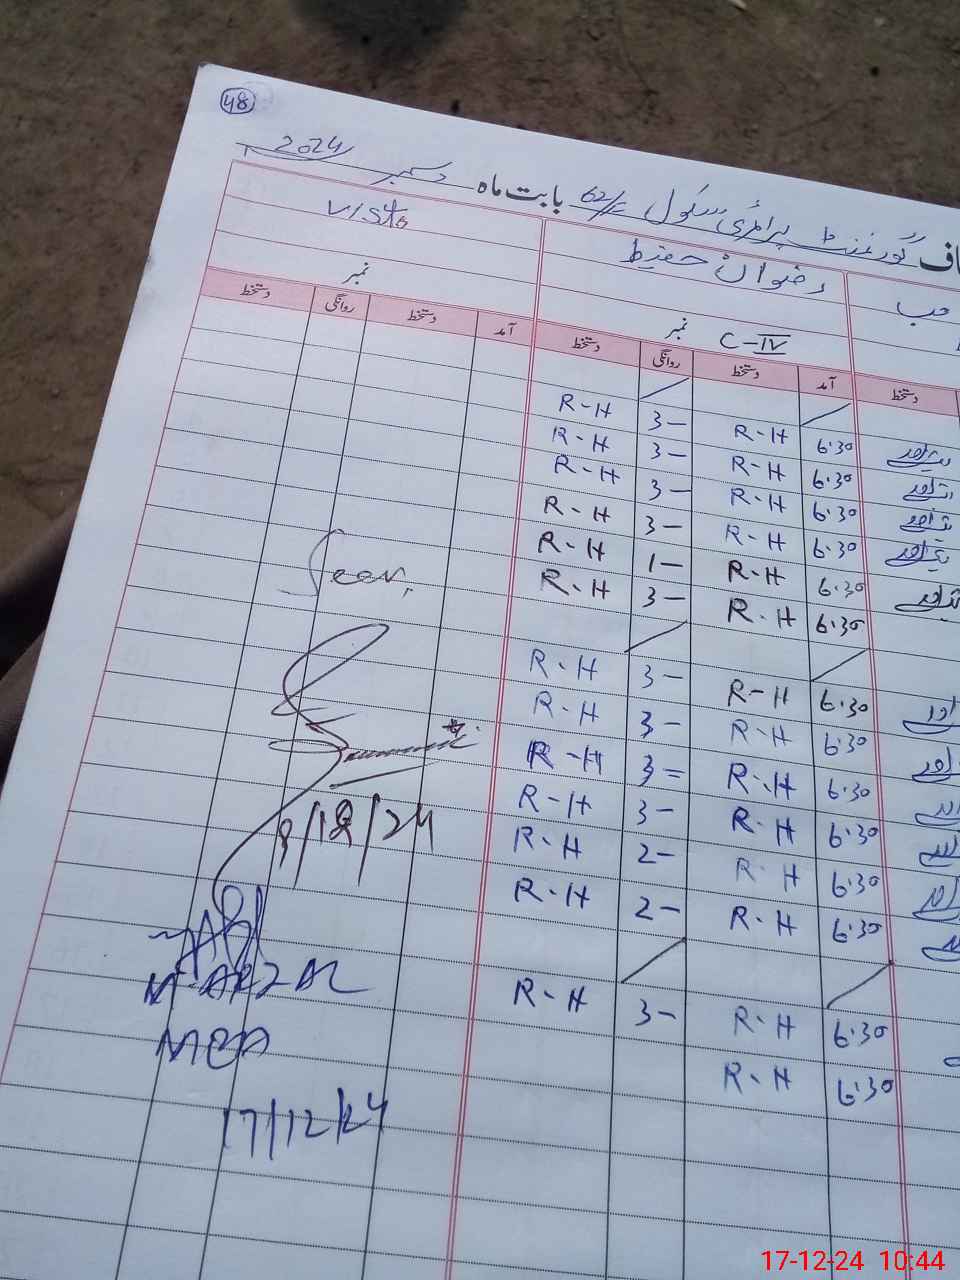 48
گورنمنٹ پرائمری سکول 62/E بابت ماہ دسمبر 2024
Visito
رضوان حفیظ
نمبر
نمبر C-IV
دستخط آمد دستخط روانگی دستخط آمد دستخط روانگی دستخط
6:30 R-H 3- R-H
6:30 R-H 3- R-H
6:30 R-H 3- R-H
6:30 R-H 3- R-H
6:30 R-H 1- R-H
6:30 R-H 3- R-H
6:30 R-H 3- R-H
6:30 R-H 3- R-H
6:30 R-H 3= R-H
6:30 R-H 3- R-H
6:30 R-H 2- R-H
6:30 R-H 2- R-H
6:30 R-H 3- R-H
6:30 R-H
Seen,
9/12/24
M-AFZAL
MEA
17/12/24
17-12-24 10:44